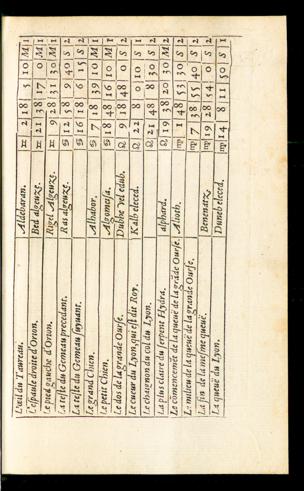 L'œil du Taureau. Aldebaran. ♊ 2 18 5 10 M 1
L'espaule droite d'Orion. Bed algeuze. ♊ 21 38 17 0 M 1
Le pied gauche d'Orion. Rigel Algeuze. ♊ 9 28 31 30 M 1
La teste du Gemeau precedant. Ras algeuze. ♋ 12 58 9 40 S 2
La teste du Gemeau suyuant. ♋ 16 18 6 15 S 2
Le grand Chien. Alhabor. ♋ 7 18 39 10 M 1
Le petit Chien. Algomeisa. ♋ 18 48 16 10 M 1
Le dos de la grande Ourse. Dubhe vel edub. ♌ 9 18 48 0 S 2
Le cueur du Lyon, qui est dit Roy. Kalb eleced. ♌ 22 8 0 10 S 1
Le chaignon du col du Lyon. ♌ 21 48 8 30 S 2
La plus claire du serpent Hydra. alphard. ♌ 19 38 20 30 M 2
Le cõmencemẽt de la queuë de la grãde Ourse. Alioth. ♍ 1 48 53 30 S 2
Le milieu de la queuë de la grande Ourse. ♍ 7 38 55 40 S 2
La fin de la mesme queuë. Benenatz. ♍ 19 28 54 0 S 2
La queuë du Lyon. Duneb eleced. ♍ 14 8 11 50 S 1